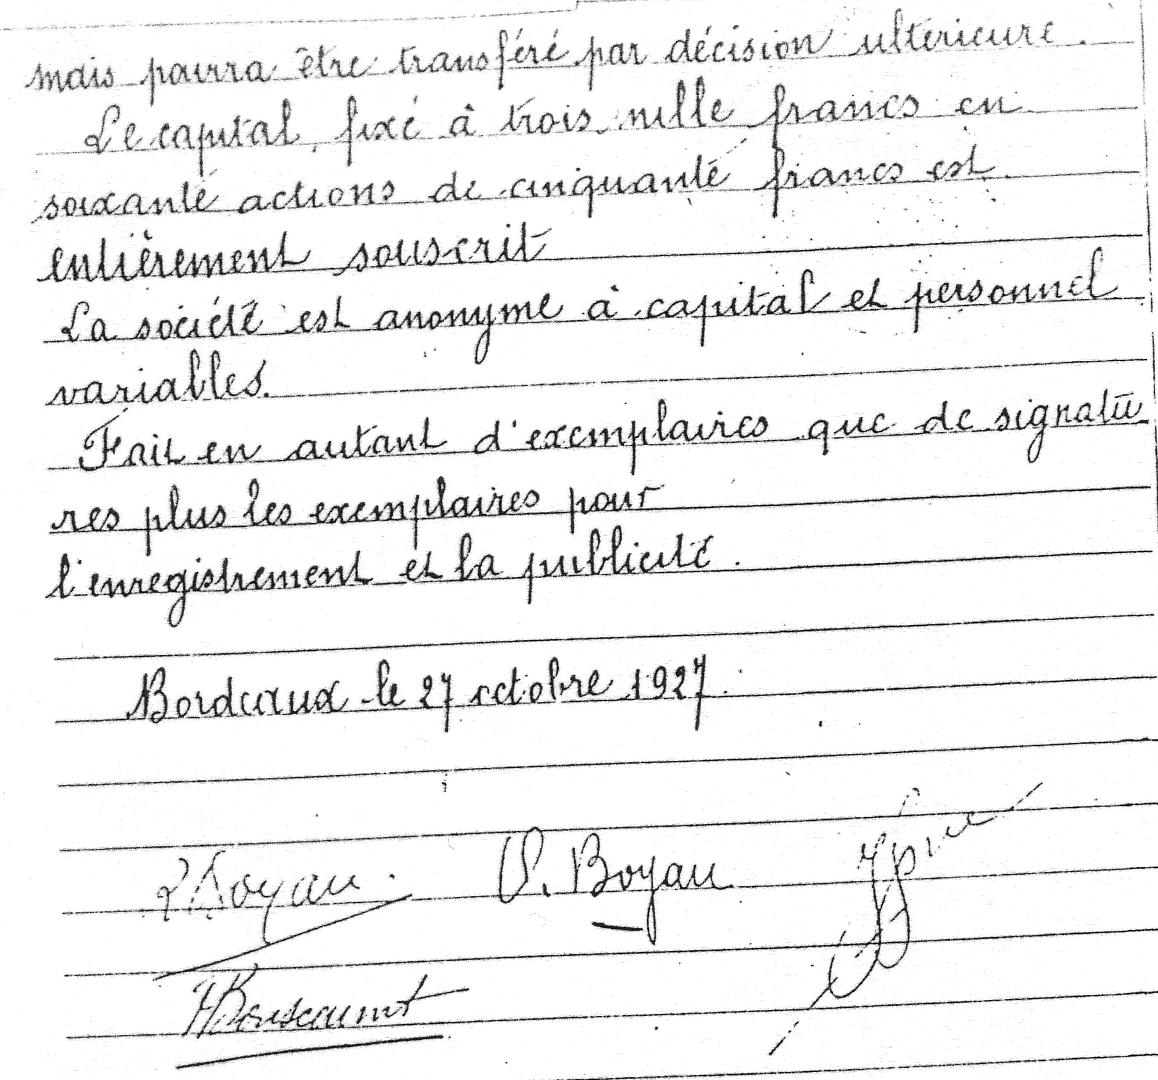 mais pourra être transféré par décision ultérieure.
Le capital, fixé à trois mille francs en
soixante actions de cinquante francs est
entièrement souscrit
La société est anonyme à capital et personnel
variables.
Fait en autant d'exemplaires que de signatu
res plus les exemplaires pour
l'enregistrement et la publicité.
Bordeaux le 27 octobre 1927.
Boyau. V. Boyau